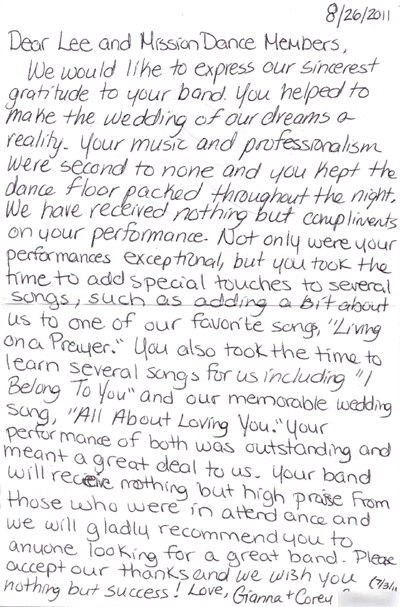 8/26/2011
Dear Lee and Mission Dance Members,
We would like to express our sincerest
gratitude to your band. You helped to
make the wedding of our dreams a
reality. Your music and professionalism
were second to none and you kept the
dance floor packed throughout the night.
We have received nothing but compliments
on your performance. Not only were your
performances exceptional, but you took the
time to add special touches to several
songs, such as adding a bit about
us to one of our favorite songs, "Living
on a Prayer." You also took the time to
learn several songs for us including "I
Belong To You" and our memorable wedding
song, "All About Loving You." Your
performance of both was outstanding and
meant a great deal to us. Your band
will receive nothing but high praise from
those who were in attendance and
we will gladly recommend you to
anyone looking for a great band. Please
accept our thanks and we wish you
nothing but success! Love, Gianna + Corey